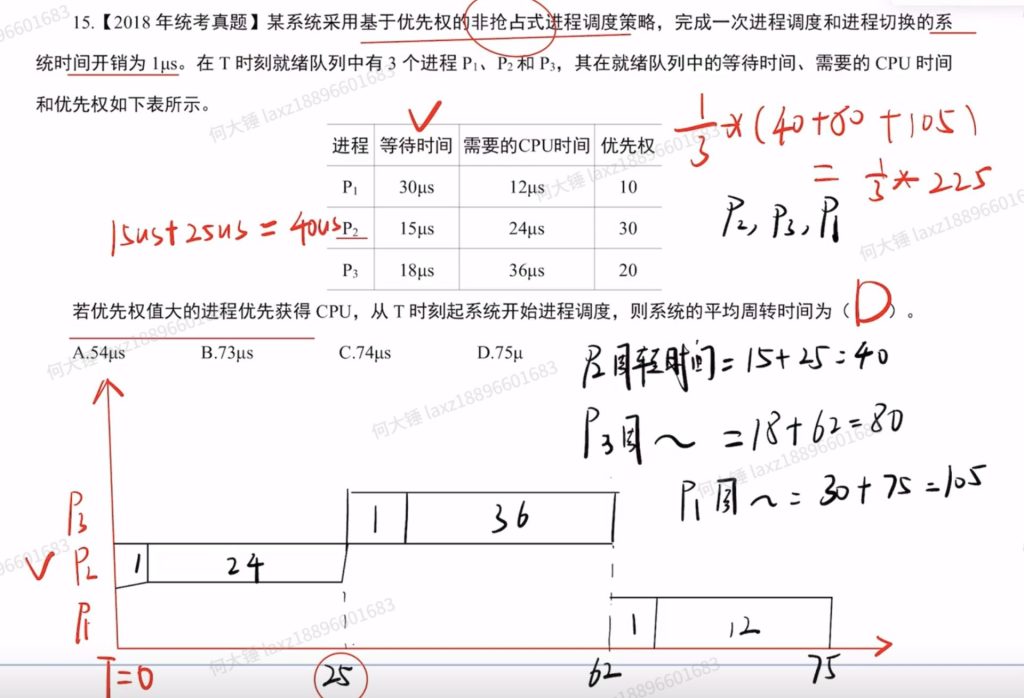 15.【2018 年统考真题】某系统采用基于优先权的非抢占式进程调度策略，完成一次进程调度和进程切换的系
统时间开销为 1μs。在 T 时刻就绪队列中有 3 个进程 P₁、P₂ 和 P₃，其在就绪队列中的等待时间、需要的 CPU 时间
和优先权如下表所示。
进程 等待时间 需要的CPU时间 优先权
P₁ 30μs 12μs 10
P₂ 15μs 24μs 30
P₃ 18μs 36μs 20
1/3 * (40+80+105)
= 1/3 * 225
P₂, P₃, P₁
15us+25us=40us
若优先权值大的进程优先获得 CPU，从 T 时刻起系统开始进程调度，则系统的平均周转时间为（D）。
A.54μs B.73μs C.74μs D.75μ
P₂周转时间=15+25=40
P₃周~=18+62=80
P₁周~=30+75=105
P₃ 1 36
P₂ 1 24
P₁ 1 12
T=0 25 62 75
何大锤 laxz18896601683
何大锤 laxz18896601683
何大锤 laxz18896601683
何大锤 laxz18896601683
何大锤 laxz18896601683
何大锤 laxz18896601683
何大锤 laxz18896601683
何大锤 laxz18896601683